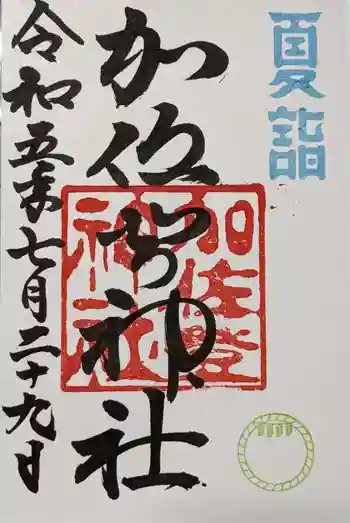 夏詣
加佐登神社
加佐登神社
令和五年七月二十九日